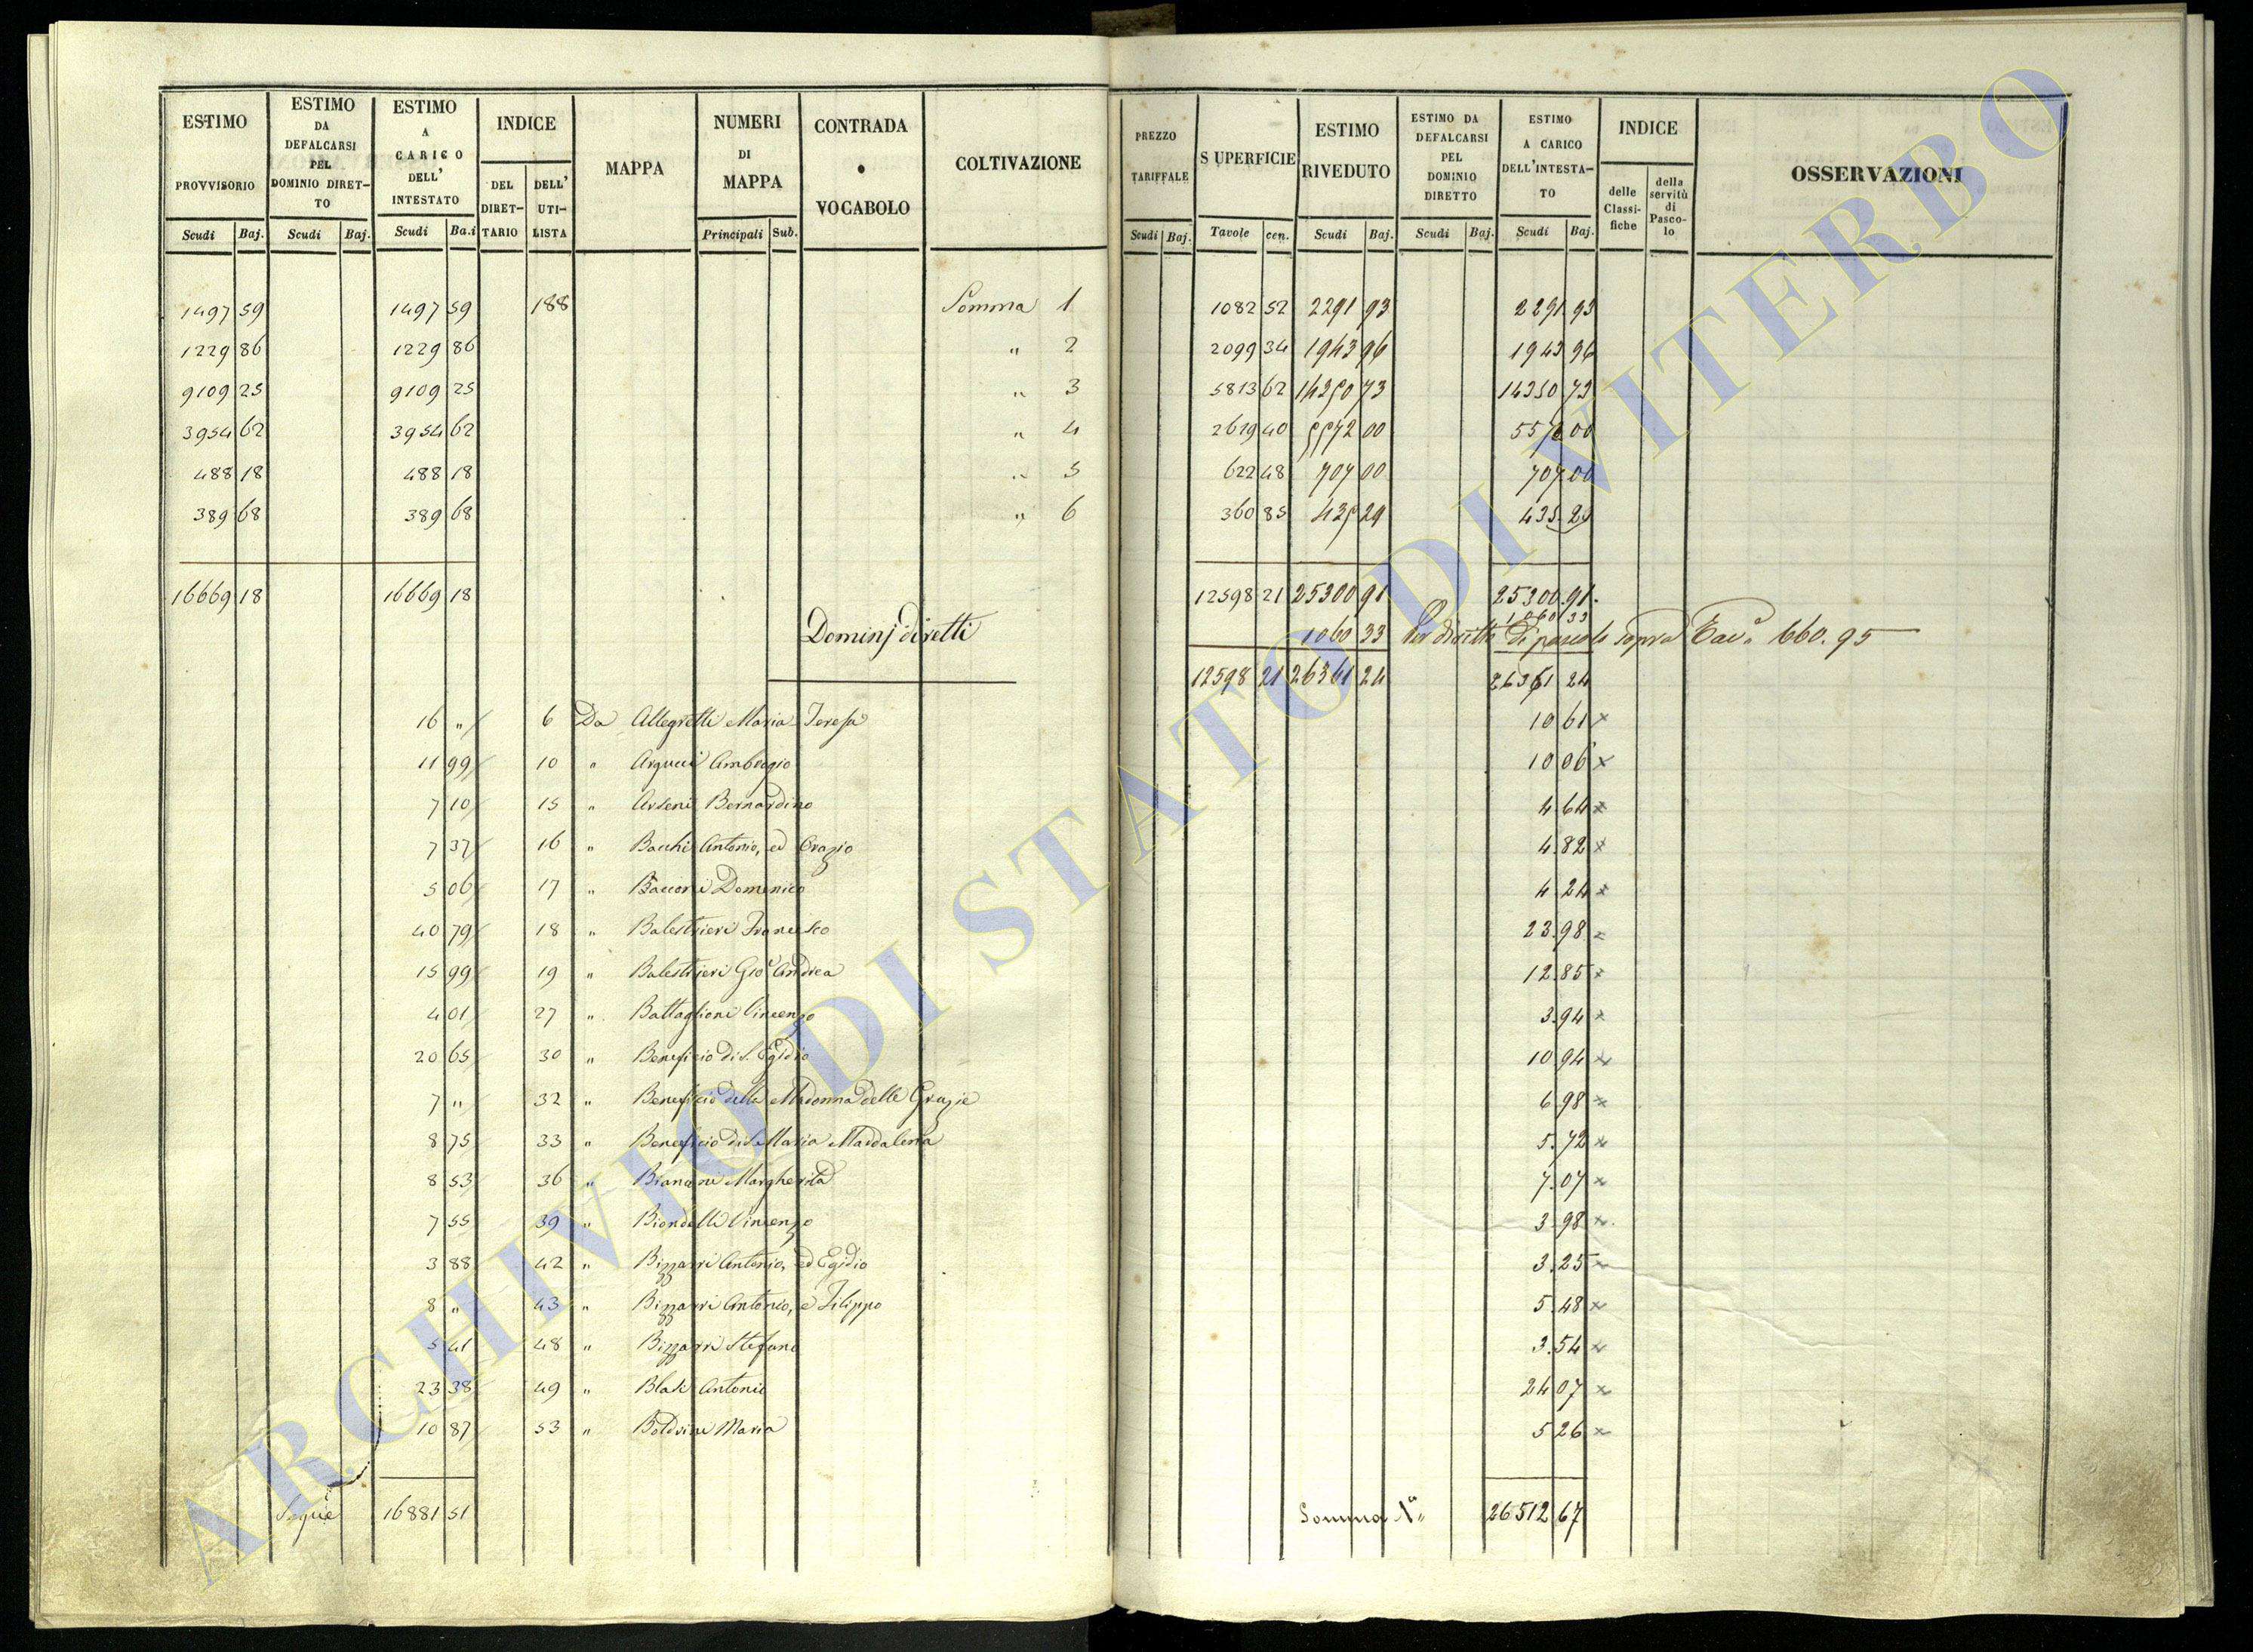 ESTIMO PROVVISORIO
ESTIMO DA DEFALCARSI PEL DOMINIO DIRET-TO
ESTIMO A CARICO DELL' INTESTATO
INDICE
DEL DIRET-TARIO
DELL' UTI-LISTA
MAPPA
NUMERI DI MAPPA
CONTRADA o VOCABOLO
COLTIVAZIONE
PREZZO TARIFFALE
SUPERFICIE
ESTIMO RIVEDUTO
ESTIMO DA DEFALCARSI PEL DOMINIO DIRETTO
ESTIMO A CARICO DELL'INTESTA-TO
INDICE
delle Classi-fiche
della servitù di Pasco-lo
OSSERVAZIONI
Scudi Baj. Scudi Baj. Scudi Ba.i Principali Sub. Scudi Baj. Tavole cen. Scudi Baj. Scudi Baj. Scudi Baj.
1497 59 1497 59 188 Somma 1 1082 52 2291 93 2291 93
1229 86 1229 86 " 2 2099 34 1943 96 1943 96
9109 25 9109 25 " 3 5813 62 14350 73 14350 73
3954 62 3954 62 " 4 2619 40 5572 00 5572 00
488 18 488 18 " 5 622 48 707 00 707 00
389 68 389 68 " 6 360 85 435 29 435 29
16669 18 16669 18 12598 21 25300 91 25300.91.
Dominj diretti 1060 33 1060 33 Per diritto di pascolo sopra Tav. 660.95
12598 21 26361 24 26361 24
16 " 6 Da Allegretti Maria Teresa 10 61 x
11 99 10 " Argucci Ambrogio 10 06 x
7 10 15 " Arseni Bernardino 4 64 x
7 37 16 " Bacchi Antonio, ed Orazio 4.82 x
5 06 17 " Baccori Domenico 4 24 x
40 79 18 " Balestrieri Francesco 23.98
15 99 19 " Balestrieri Gio. Andrea 12.85 x
4 01 27 " Battaglioni Vincenzo 3.94 x
20 65 30 " Beneficio di S. Egidio 10 94 x
7 " 32 " Beneficio della Madonna delle Grazie 6 98 x
8 75 33 " Beneficio di S. Maria Maddalena 5.72 x
8 53 36 " Biancini Margherita 7.07 x
7 55 39 " Biondelli Vincenzo 3.98 x
3 88 42 " Bizzarri Antonio, ed Egidio 3.25 x
8 " 43 " Bizzarri Antonio, e Filippo 5.48 x
5 41 48 " Bizzarri Stefano 3.54 x
23 38 49 " Blasi Antonio 24 07 x
10 87 53 " Boldrini Maria 5 26 x
Segue 16881 51 Somma 26512 67
ARCHIVIO DI STATO DI VITERBO